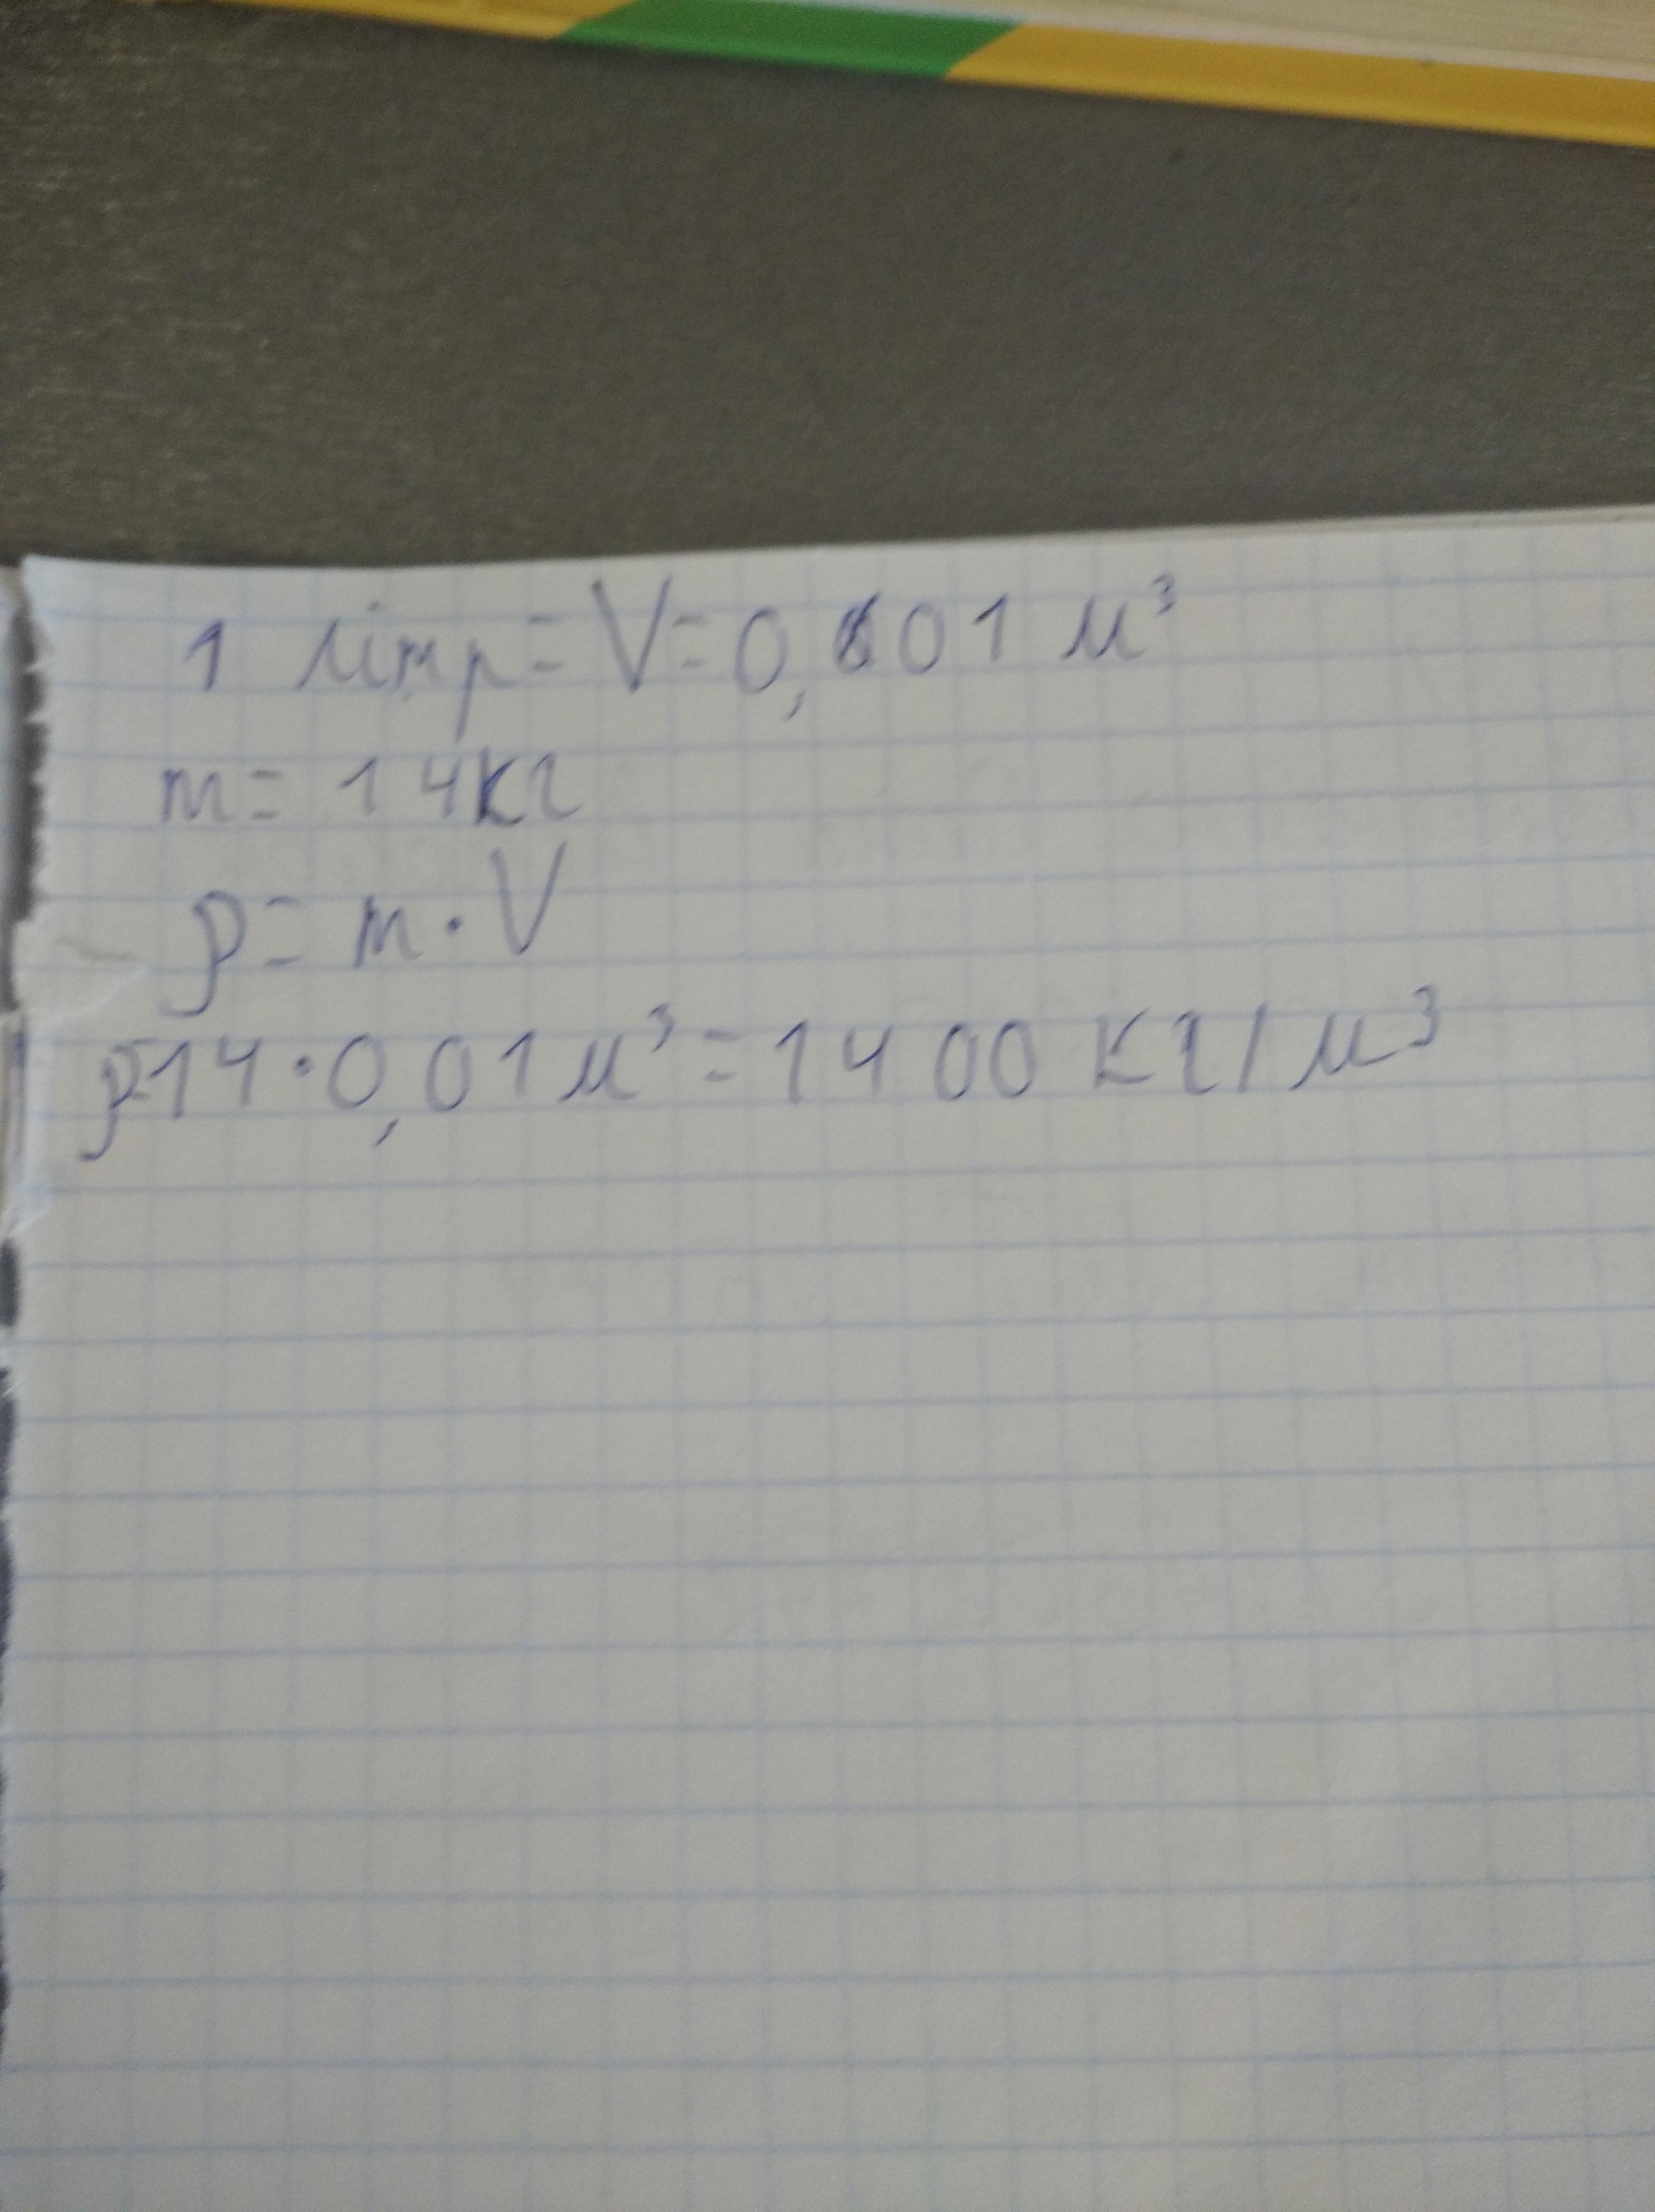 1 літр = V = 0,001 м³
m = 14кг
ρ = m · V
ρ=14 · 0,01 м³ = 1400 кг/м³